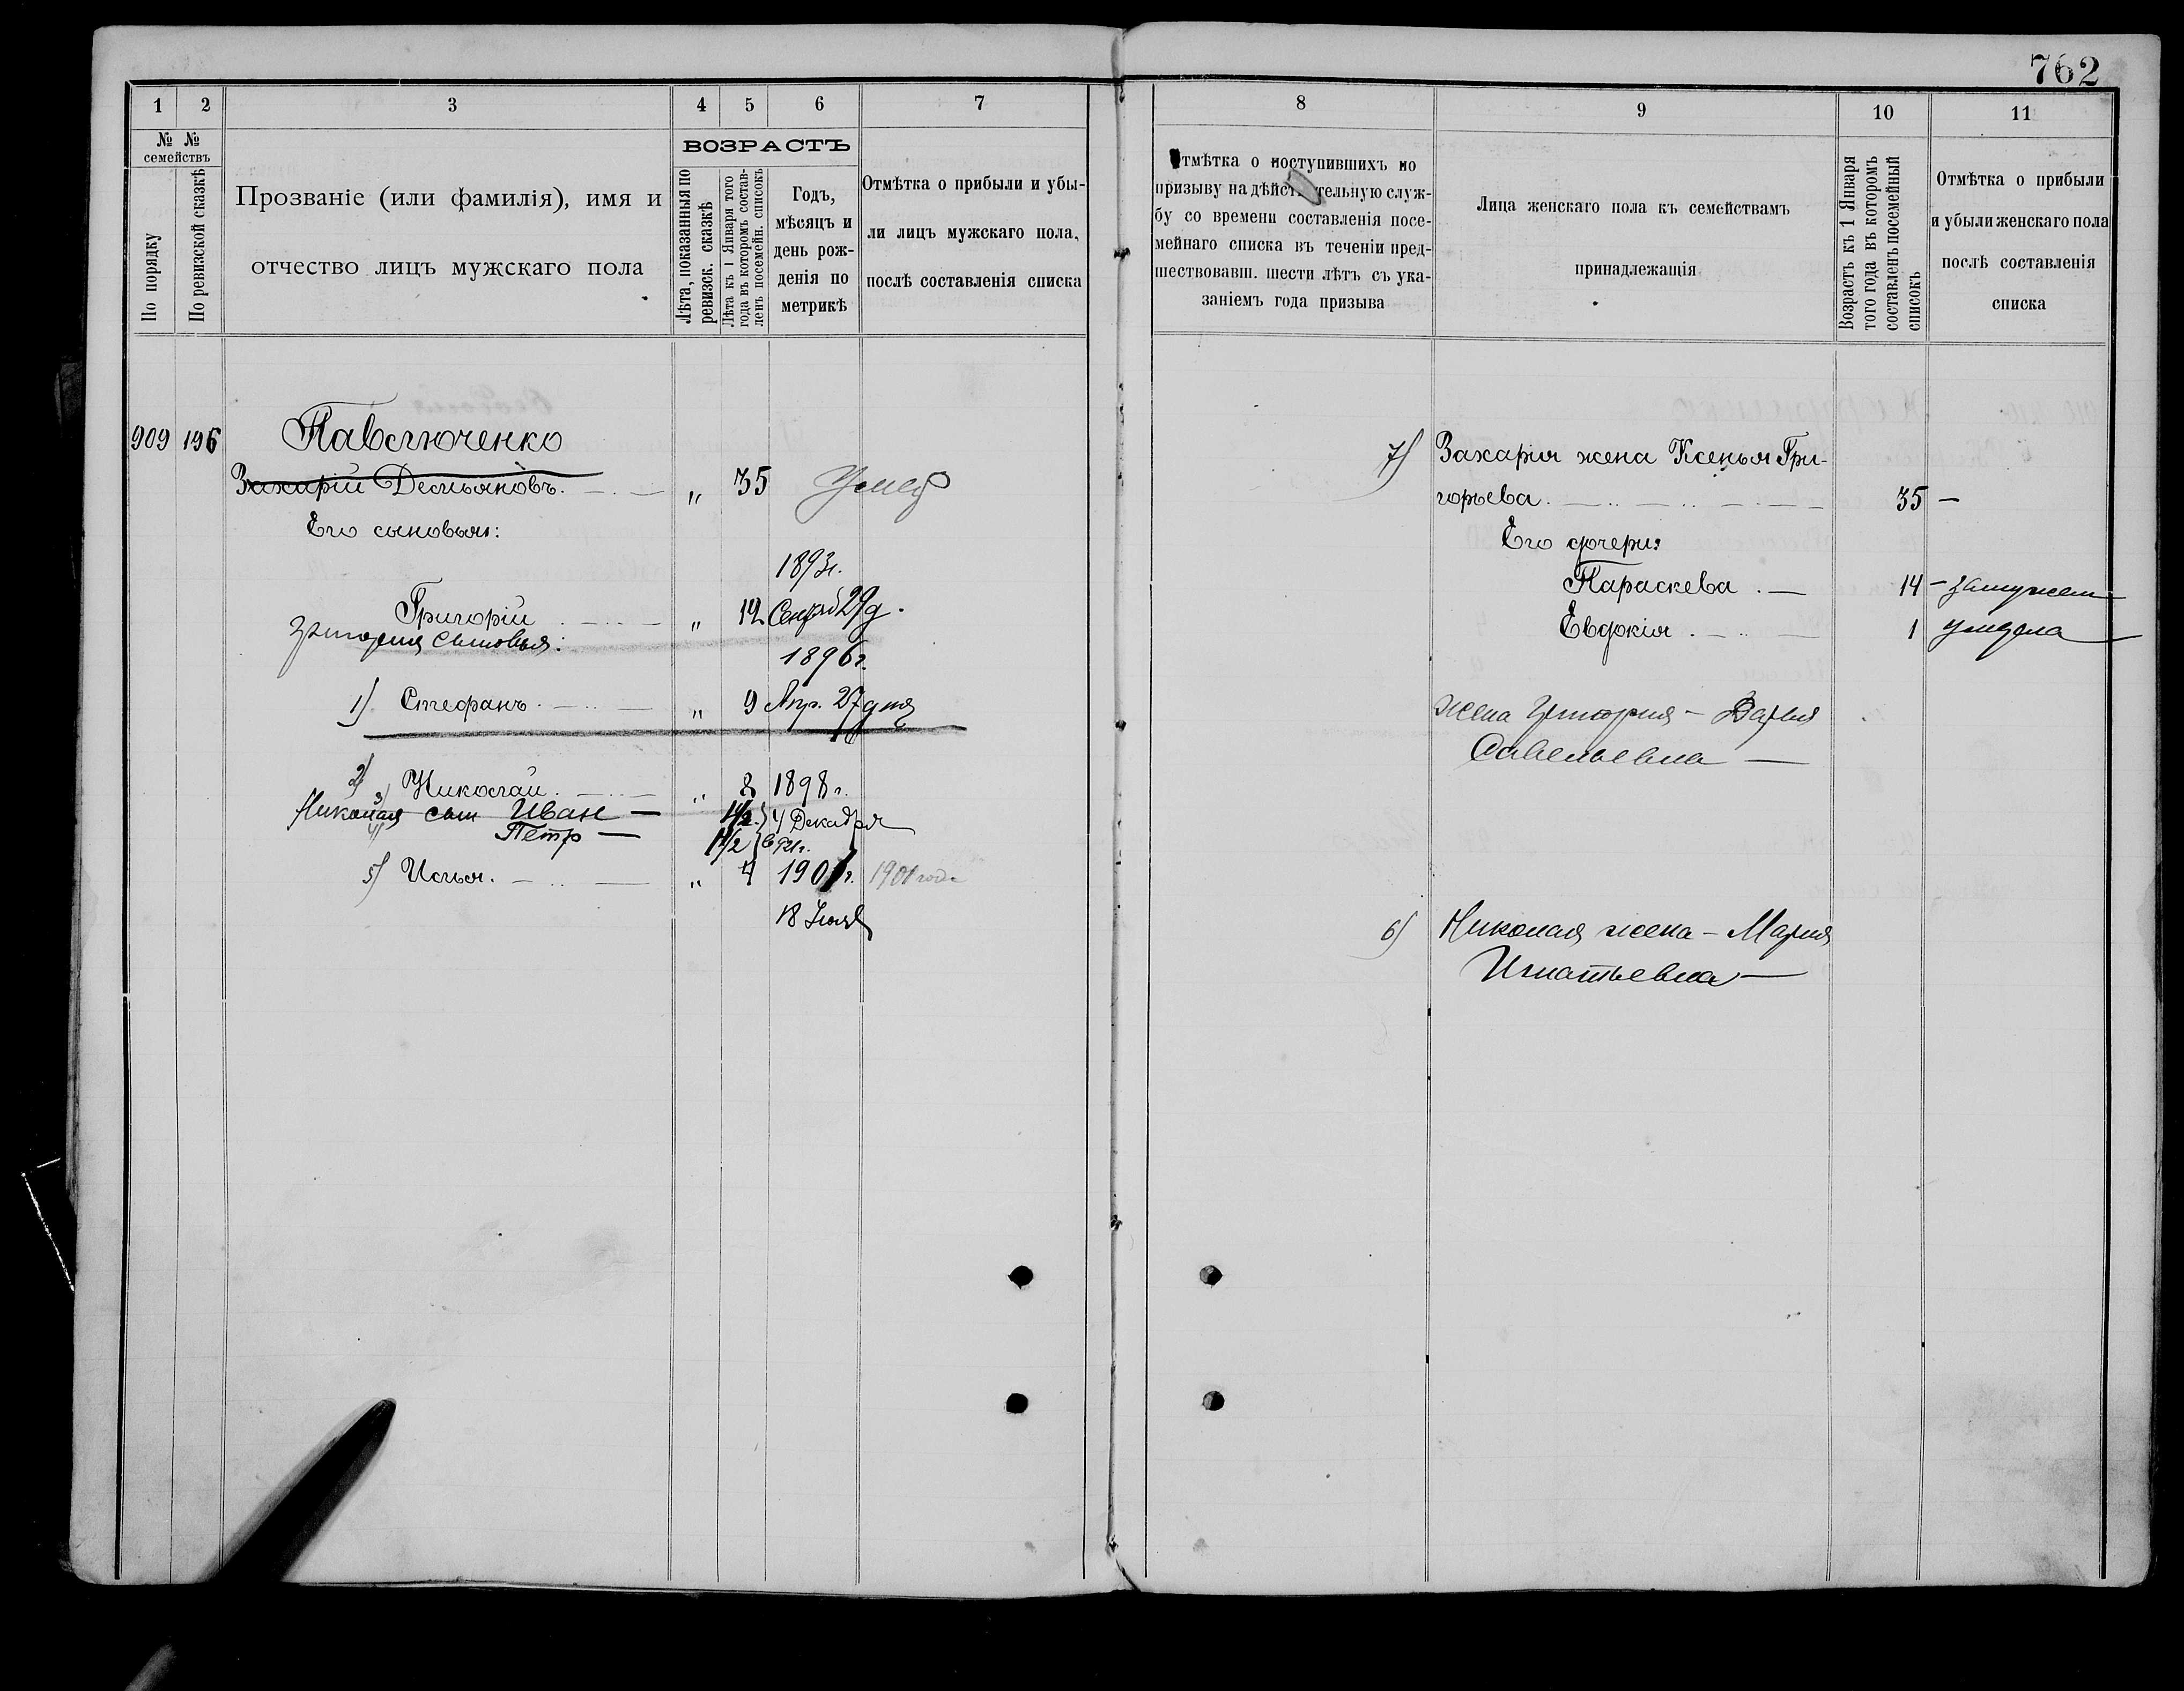 762
1 2 3 4 5 6 7
№ №
семействъ
По порядку
По ревизской сказкѣ
Прозваніе (или фамилія), имя и
отчество лицъ мужскаго пола
ВОЗРАСТЪ
Лѣта, показанныя по
ревизск. сказкѣ
Лѣта къ 1 Января того
года въ которомъ состав-
ленъ посемейн. списокъ
Годъ,
мѣсяцъ и
день рож-
денія по
метрикѣ
Отмѣтка о прибыли и убы-
ли лицъ мужскаго пола,
послѣ составленія списка
909 196 Павлюченко
Захарій Демьяновъ. „ 35 Умер
Его сыновья:
1893г.
Григорій „ 12 29 д.
Григория сыновья:
1896г.
1) Стефанъ. „ 9 Апр. 27 дня
2) Николай. „ 8 1898г.
3) Николая сын Иван — 1½ 4 Декабря
4) Петр — 1½ 1921г.
5) Илья. „ 4 1901г. 1901 года
18 Июля
8 9 10 11
Отмѣтка о поступившихъ по
призыву на дѣйствительную служ-
бу со времени составленія посе-
мейнаго списка въ теченіи пред-
шествовавш. шести лѣтъ съ ука-
заніемъ года призыва
Лица женскаго пола къ семействамъ
принадлежащія
Возрастъ къ 1 Января
того года въ которомъ
составленъ посемейный
списокъ
Отмѣтка о прибыли
и убыли женскаго пола
послѣ составленія
списка
7) Захарія жена Ксенья Гри-
горьева. 35 —
Его дочери:
Параскева. — 14 — замужем
Евдокія. — 1 умерла
жена Григория — Дарья
Савельевна —
6) Николая жена — Мария
Игнатьевна —